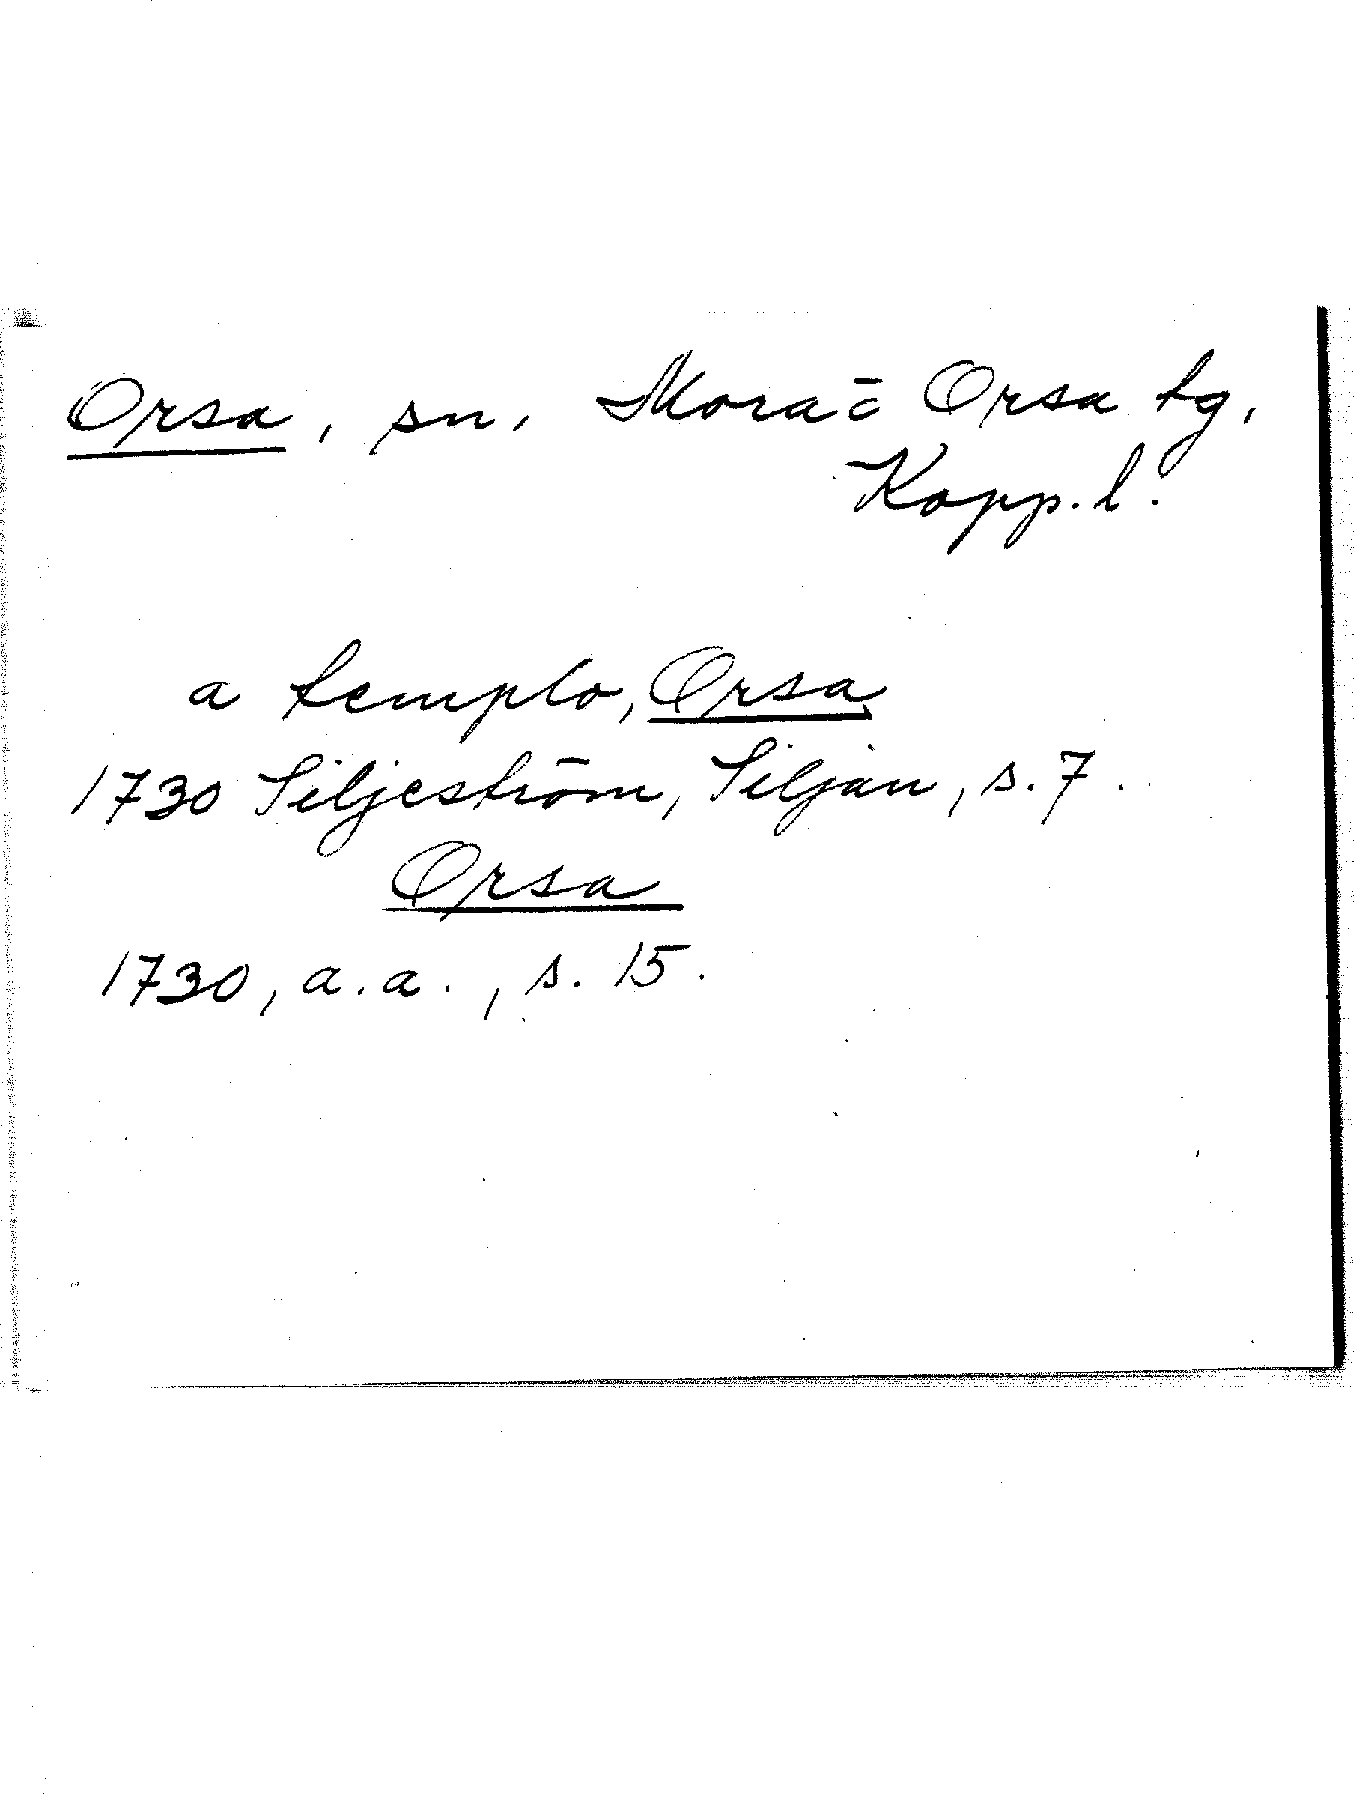 Orsa, sn, Mora= Orsa tg,
Kopp.l.
a templo, Orsa
1730 Siljeström, Siljan, s.7.
Orsa
1730, a.a., s. 15.